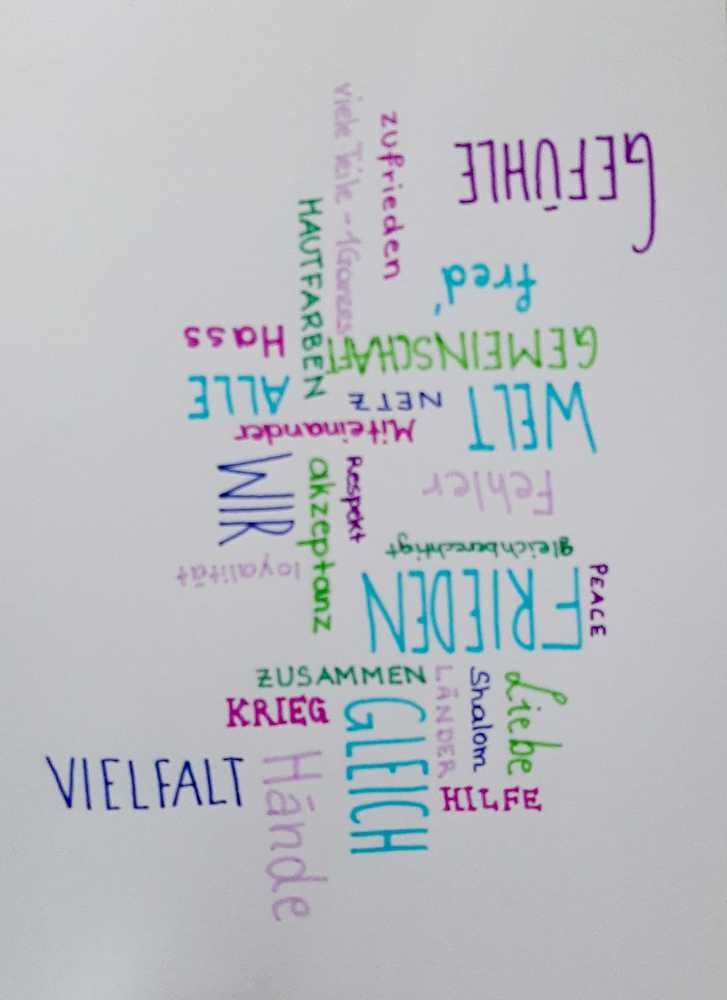 GEFÜHLE
zufrieden
viele Teile - 1 Ganzes
HAUTFARBEN
fred'
Hass
GEMEINSCHAFT
ALLE
NETZ
WELT
Miteinander
WIR
akzeptanz
Respekt
Fehler
gleichberechtigt
loyalität
FRIEDEN
PEACE
ZUSAMMEN
KRIEG
GLEICH
LÄNDER
Shalom
Liebe
VIELFALT
Hände
HILFE